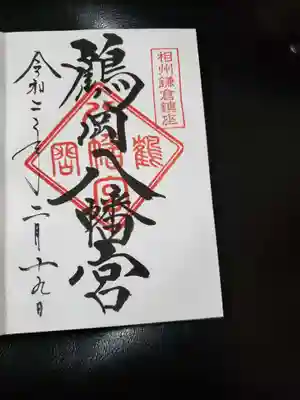 相州鎌倉鎮座
鶴岡八幡宮
鶴岡八幡宮
令和二年二月十九日